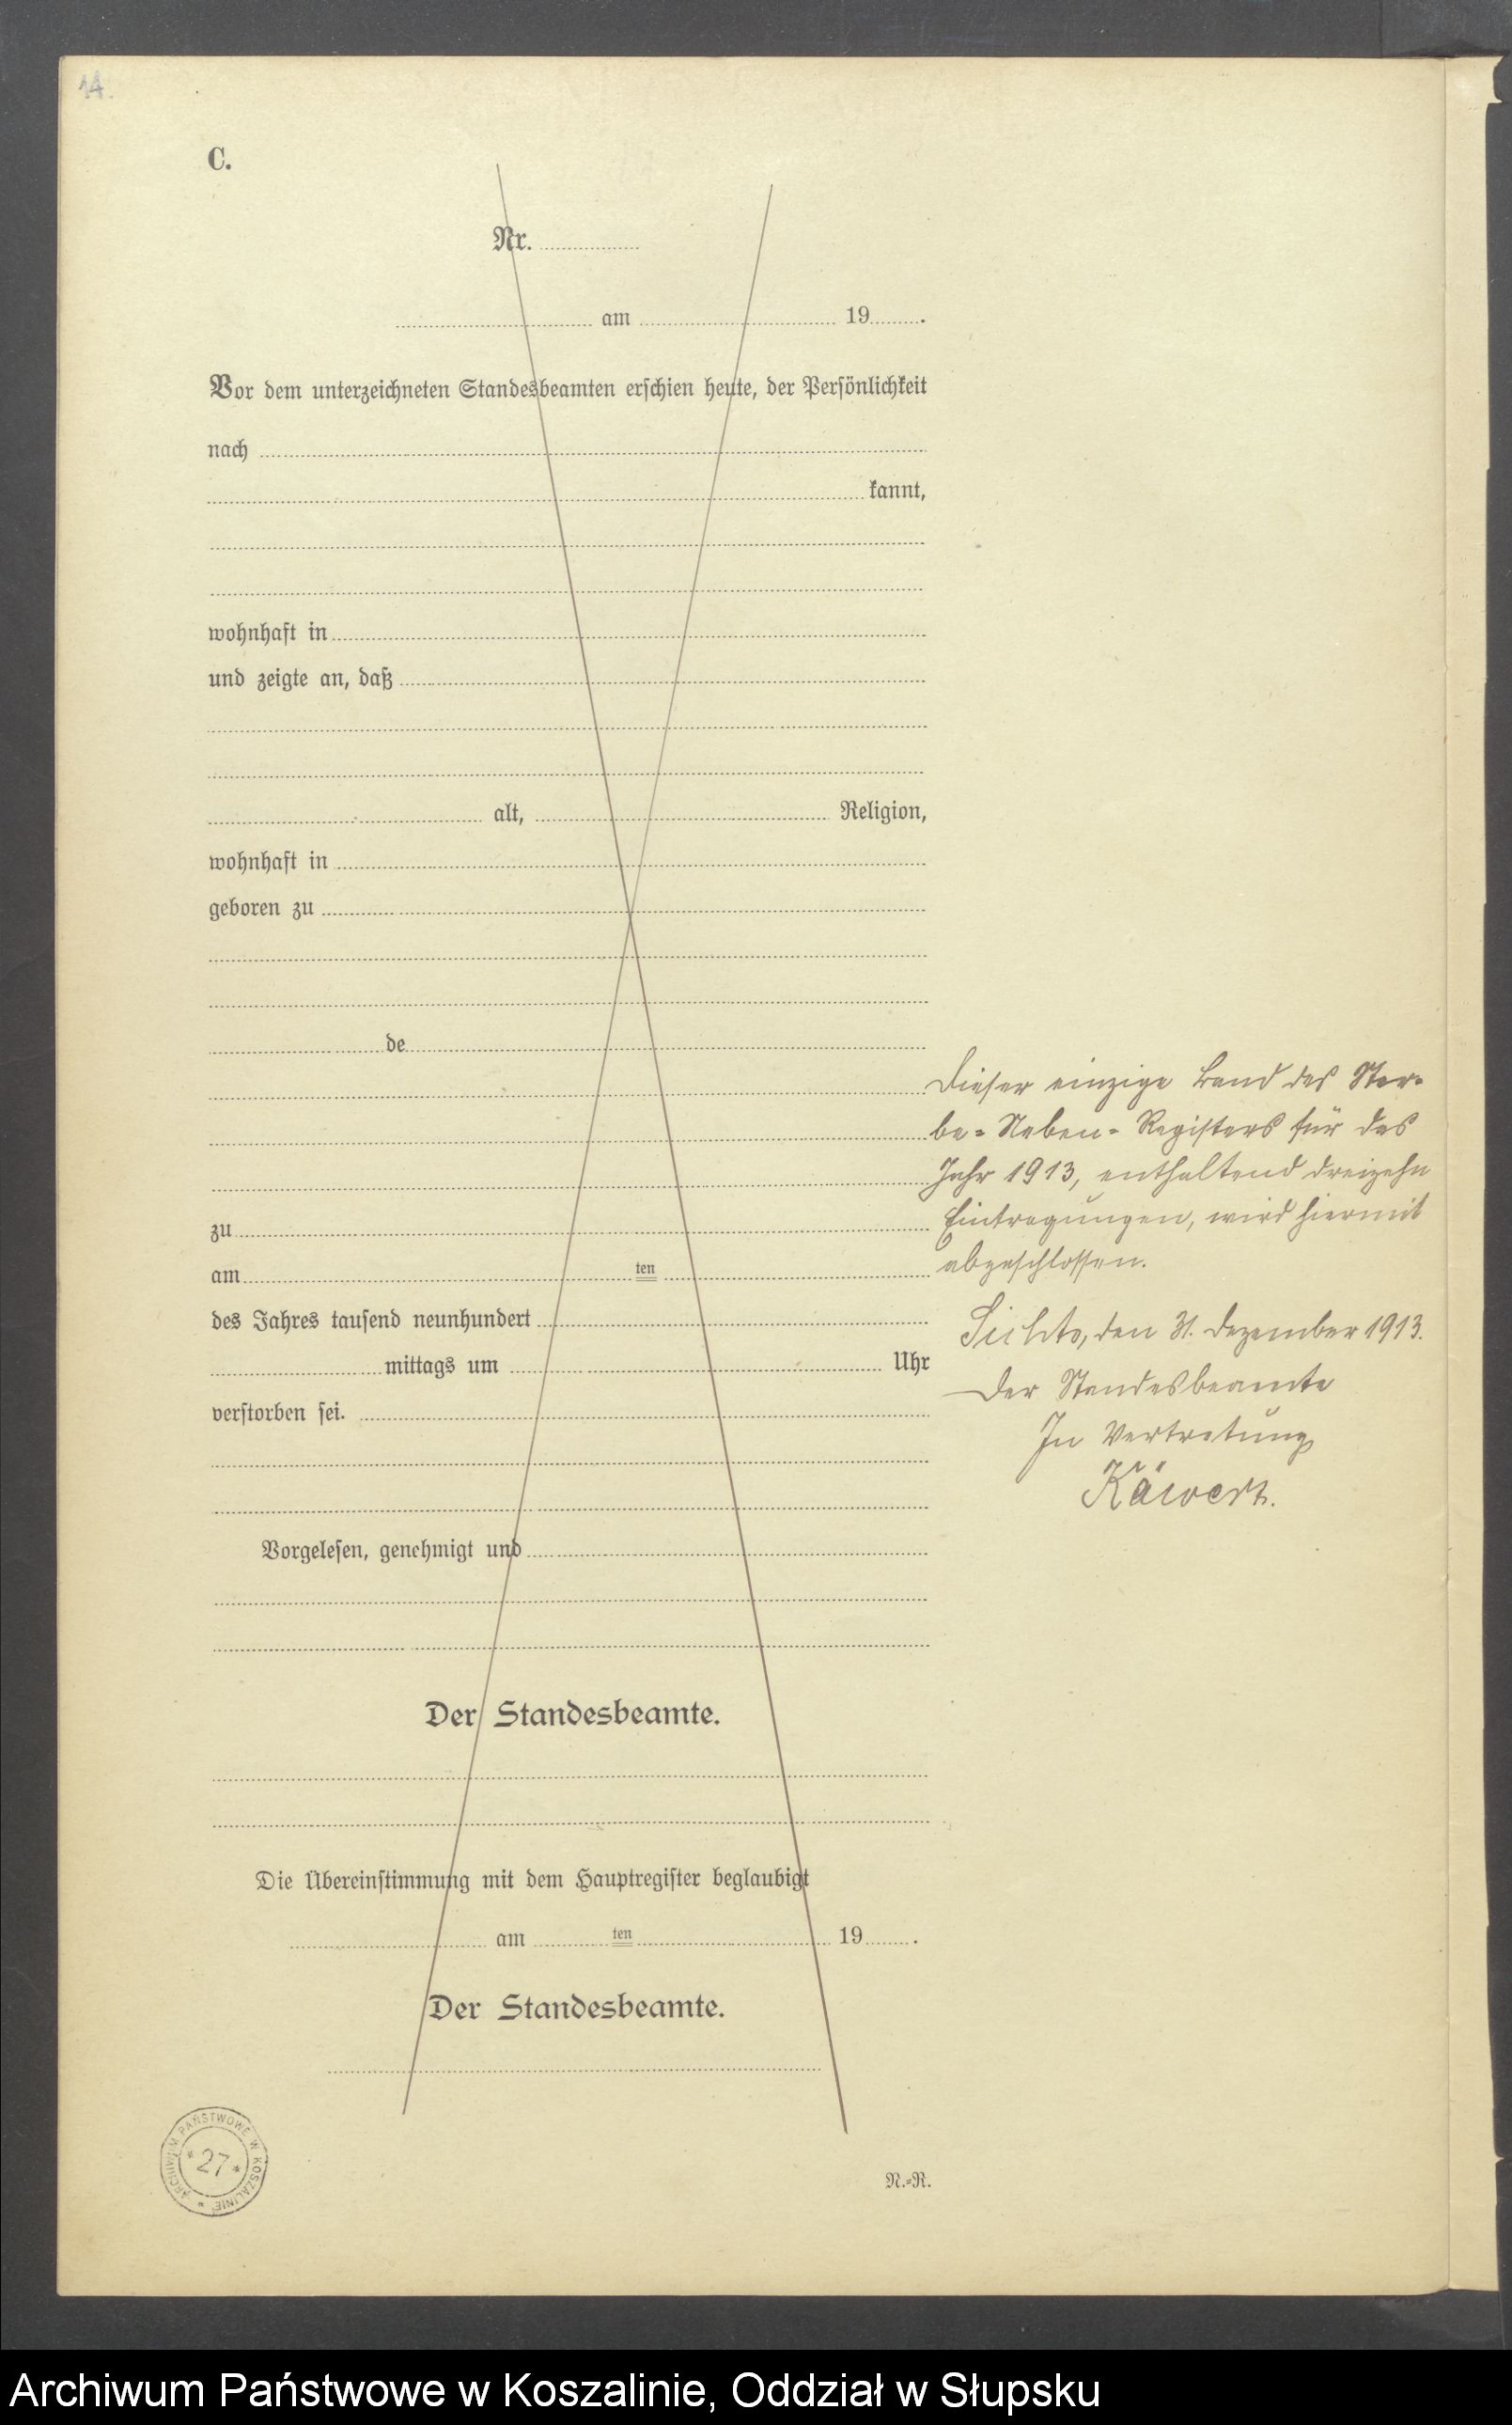 14.
C.
Nr.
am 19 .
Vor dem unterzeichneten Standesbeamten erschien heute, der Persönlichkeit
nach
kannt,
wohnhaft in
und zeigte an, daß
alt, Religion,
wohnhaft in
geboren zu
de
zu
am ten
des Jahres tausend neunhundert
mittags um Uhr
verstorben sei.
Vorgelesen, genehmigt und
Der Standesbeamte.
Die Übereinstimmung mit dem Hauptregister beglaubigt
am ten 19 .
Der Standesbeamte.
Dieser einzige Band des Ster-
be-Neben-Registers für das
Jahr 1913, enthaltend dreizehn
Eintragungen, wird hiermit
abgeschlossen.
den 31. Dezember 1913.
Der Standesbeamte
In Vertretung
ARCHIWUM PAŃSTWOWE W KOSZALINIE
*27*
N.-R.
Archiwum Państwowe w Koszalinie, Oddział w Słupsku